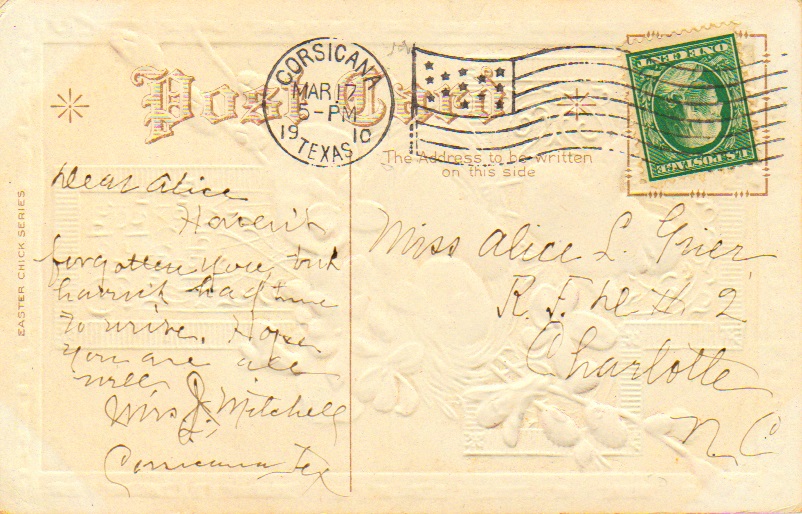 Post Card
CORSICANA
MAR 17
5-PM
1910
TEXAS
ONE CENT
U.S. POSTAGE
The Address to be written
on this side
EASTER CHICK SERIES
Dear Alice
Haven't
forgotten you, but
havn't had time
to write. Hope
you are all
well
Mrs J. Mitchell
Corsicana Tex
Miss Alice L. Grier
R. F. D. # 2
Charlotte
N C